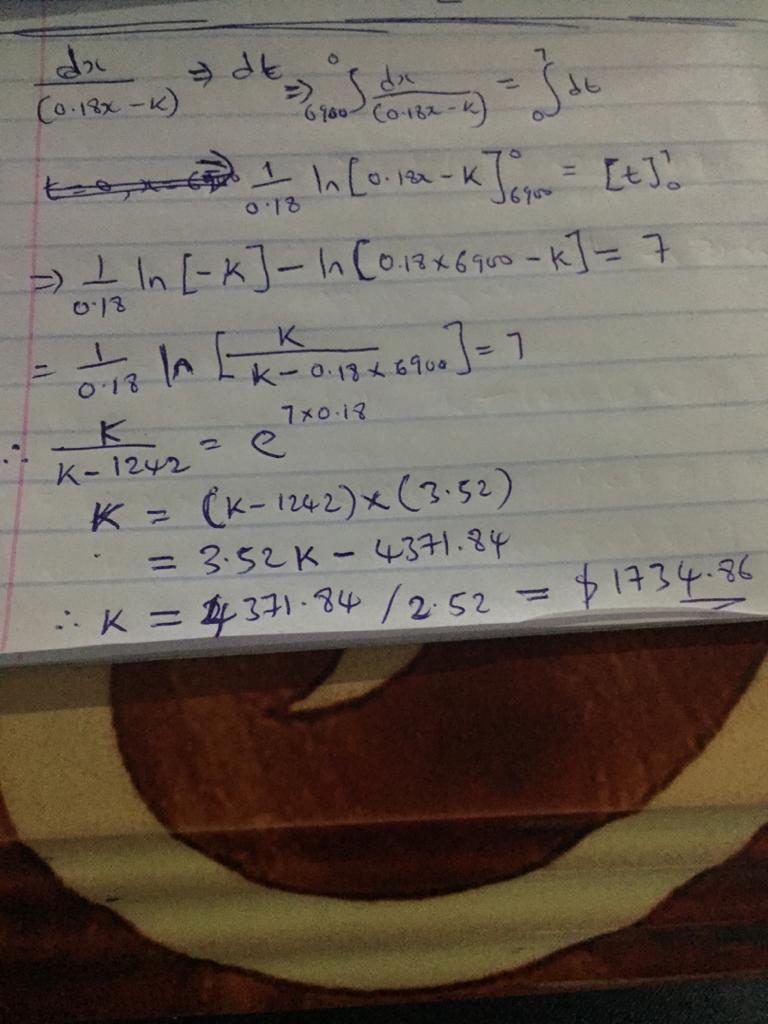 dx/(0.18x - K) ⇒ dt ⇒ ₆₉₀₀⁰∫ dx/(0.18x - K) = ₀⁷∫ dt
1/0.18 ln[0.18x - K]₆₉₀₀⁰ = [t]₀⁷
⇒ 1/0.18 ln[-K] - ln[0.18×6900 - K] = 7
= 1/0.18 ln[K/(K - 0.18×6900)] = 7
∴ K/(K - 1242) = e^(7×0.18)
K = (K - 1242) × (3.52)
= 3.52K - 4371.84
∴ K = 4371.84 / 2.52 = $1734.86